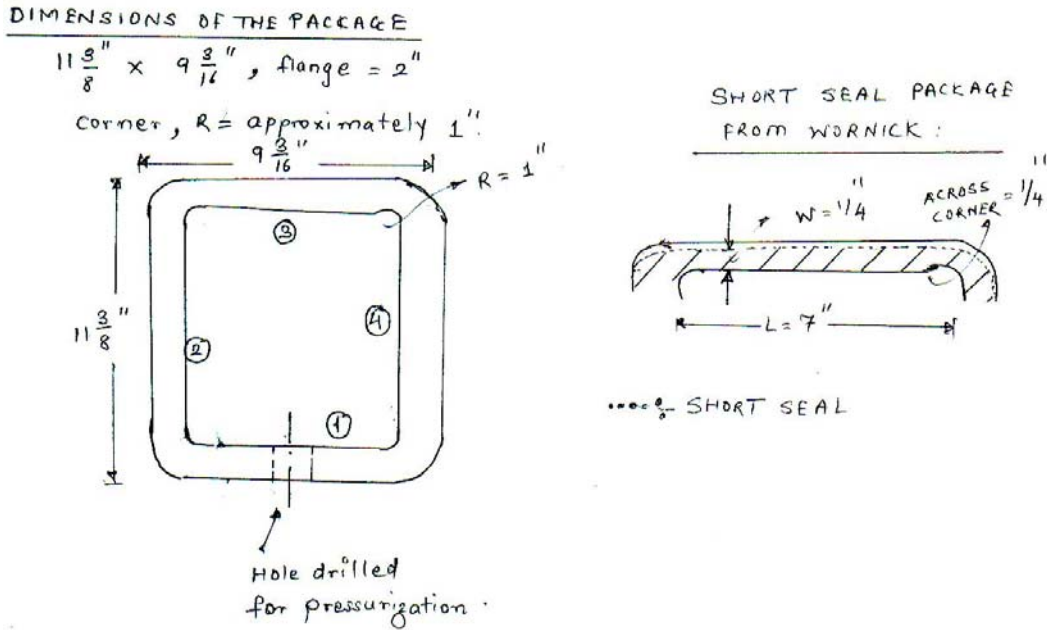 DIMENSIONS OF THE PACKAGE
11 3/8" x 9 3/16", flange = 2"
corner, R = approximately 1".
9 3/16"
R = 1"
3
11 3/8"
4
2
1
Hole drilled
for pressurization.
SHORT SEAL PACKAGE
FROM WORNICK:
W = 1/4"
ACROSS
CORNER = 1/4"
L = 7"
SHORT SEAL